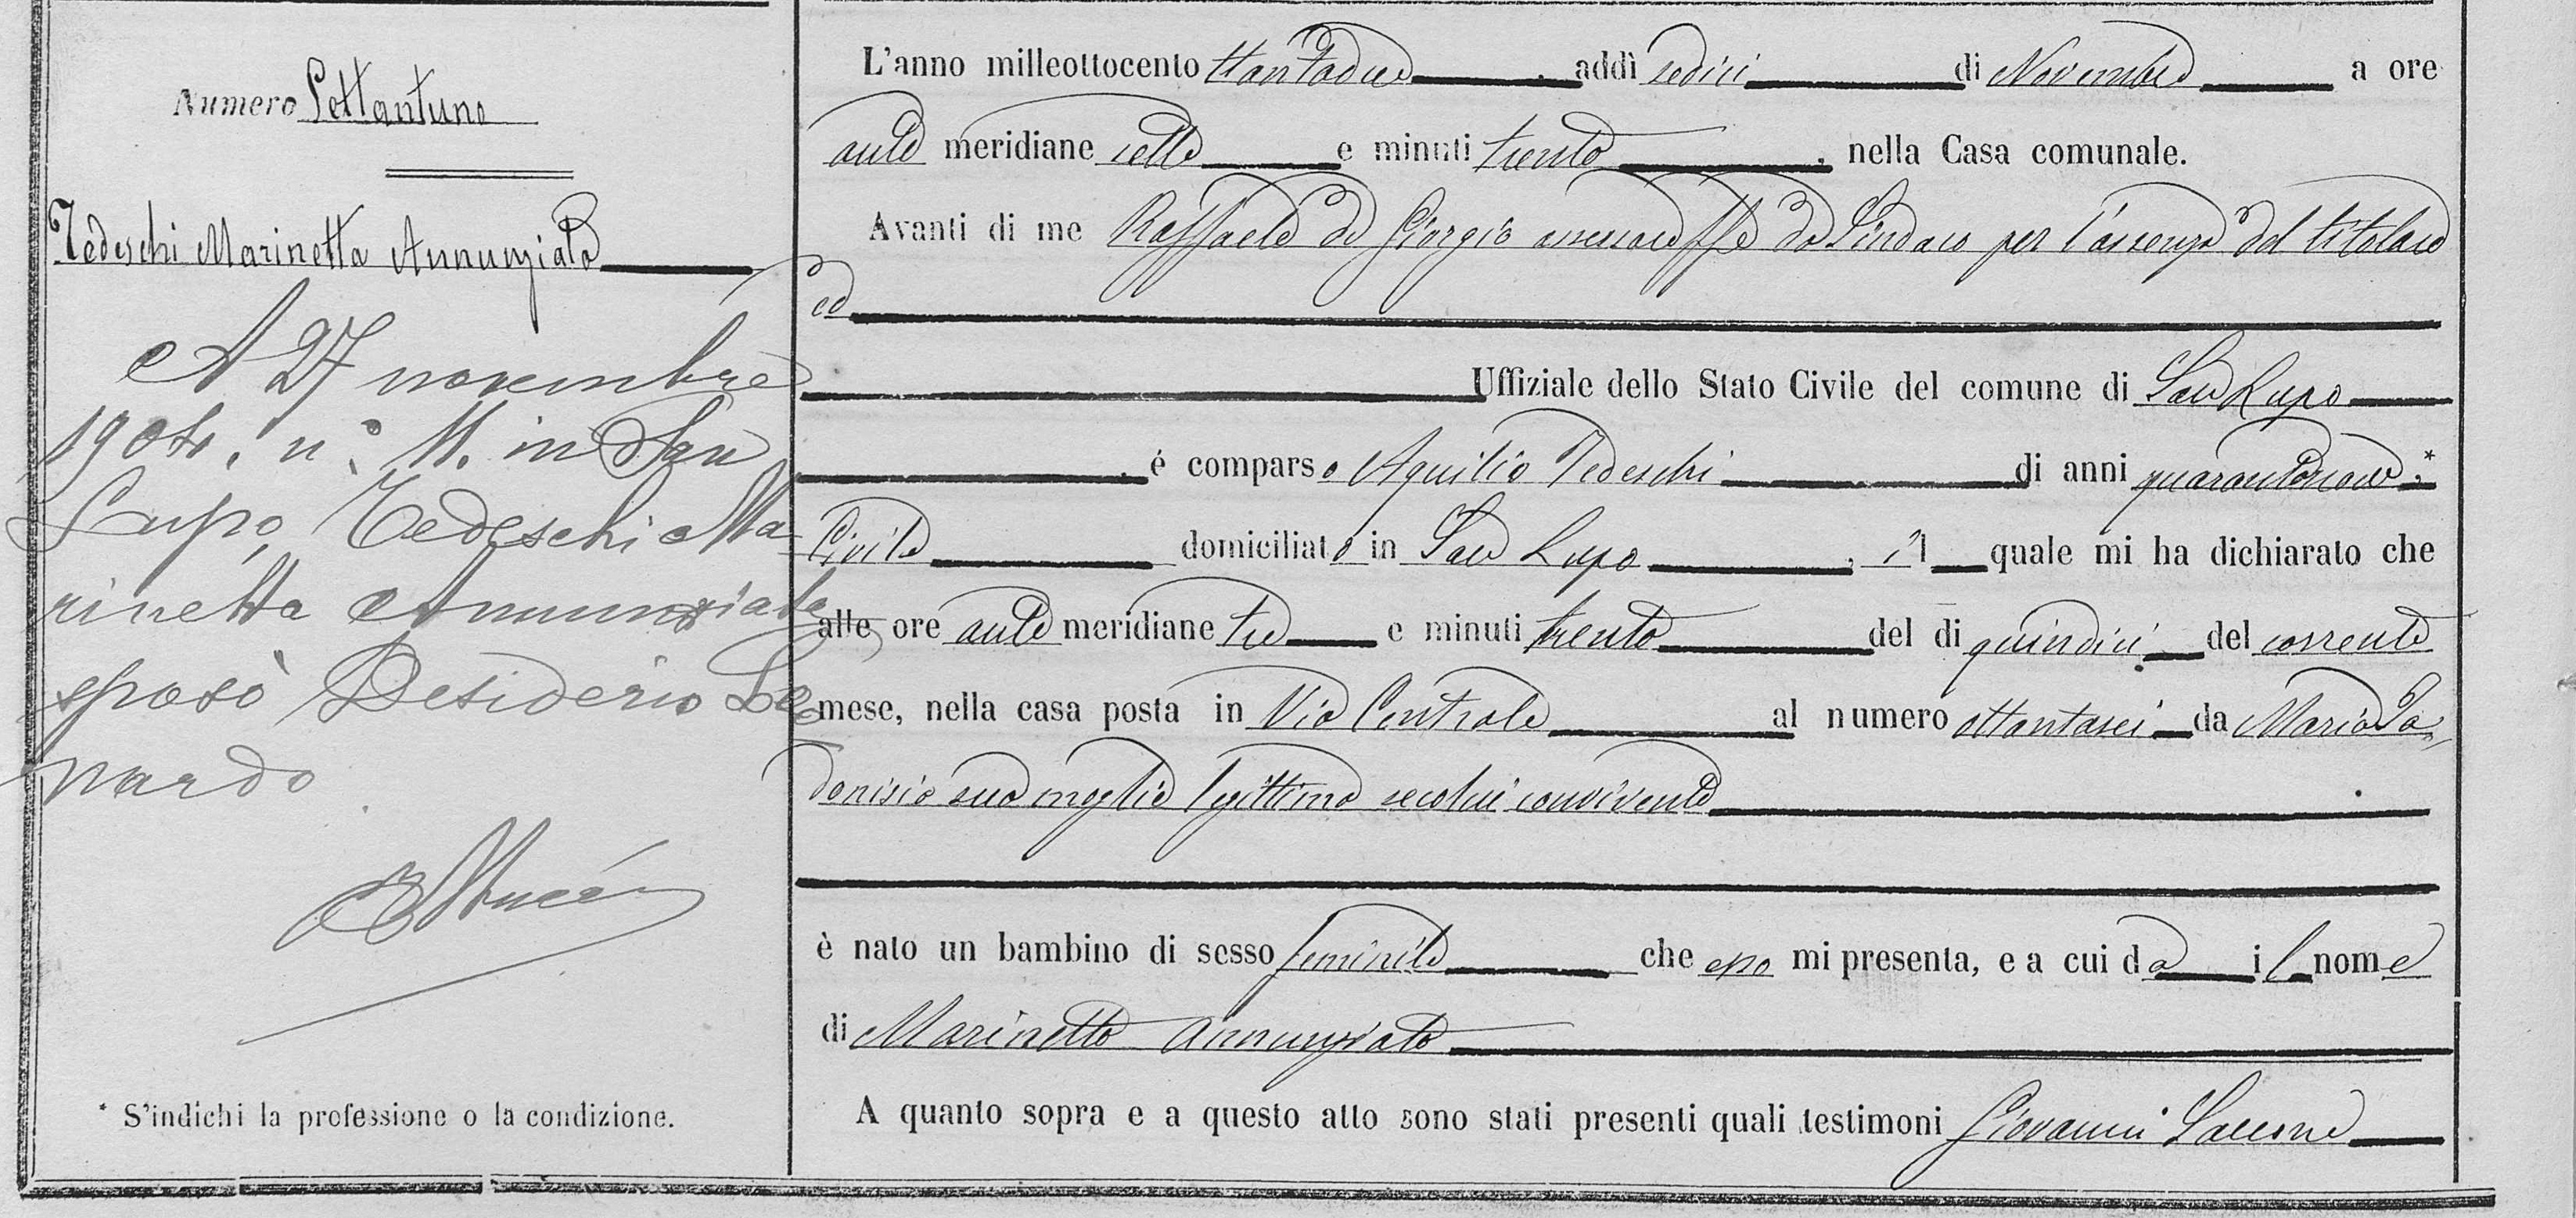 Numero Settantuno
Tedeschi Marinetta Annunziata
A 27 novembre
1904. n.° 11. in San
Lupo, Tedeschi Ma-
rinetta Annunziata
sposò Desiderio Leo
nardo
* S'indichi la professione o la condizione.
L'anno milleottocento ttantadue, addì sedici di Novembre a ore
ante meridiane sette e minuti trenta, nella Casa comunale.
Avanti di me Raffaele de Giorgio assessore ff.e da Sindaco per l'assenza del titolare
ed
Uffiziale dello Stato Civile del comune di San Lupo
, è comparso Aquilio Tedeschi di anni quarantanove, *
Civile domiciliato in San Lupo, il quale mi ha dichiarato che
alle ore ante meridiane tre e minuti trenta del dì quindici del corrente
mese, nella casa posta in Via Centrale al numero ottantasei da Maria Ia„
donisio sua moglie legittima secolui convivente
è nato un bambino di sesso feminile che esso mi presenta, e a cui da il nome
di Marinetta Annunziata
A quanto sopra e a questo atto sono stati presenti quali testimoni Giovanni Saccone